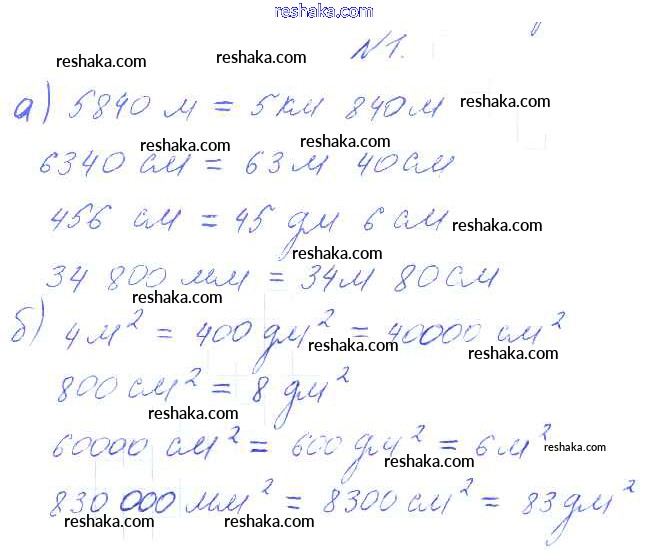 reshaka.com
№1.
reshaka.com reshaka.com
а) 5840 м = 5 км 840 м reshaka.com
reshaka.com reshaka.com
6340 см = 63 м 40 см
456 см = 45 дм 6 см reshaka.com
reshaka.com reshaka.com
34 800 мм = 34 м 80 см
reshaka.com reshaka.com
б) 4 м² = 400 дм² = 40000 см²
reshaka.com reshaka.com
800 см² = 8 дм²
reshaka.com reshaka.com
60000 см² = 600 дм² = 6 м² reshaka.com
reshaka.com reshaka.com
830 000 мм² = 8300 см² = 83 дм²
reshaka.com reshaka.com reshaka.com